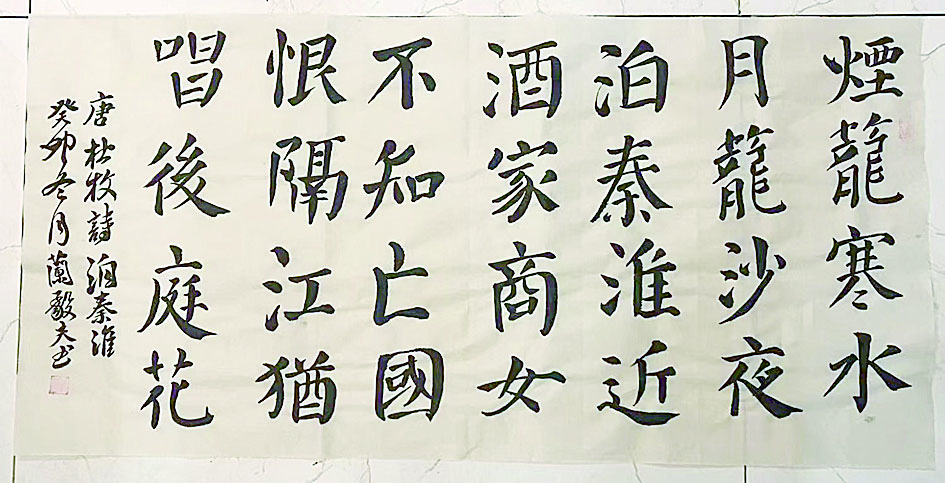 煙籠寒水
月籠沙夜
泊秦淮近
酒家商女
不知亡國
恨隔江猶
唱後庭花
唐杜牧詩泊秦淮
癸卯冬月蘭毅夫书